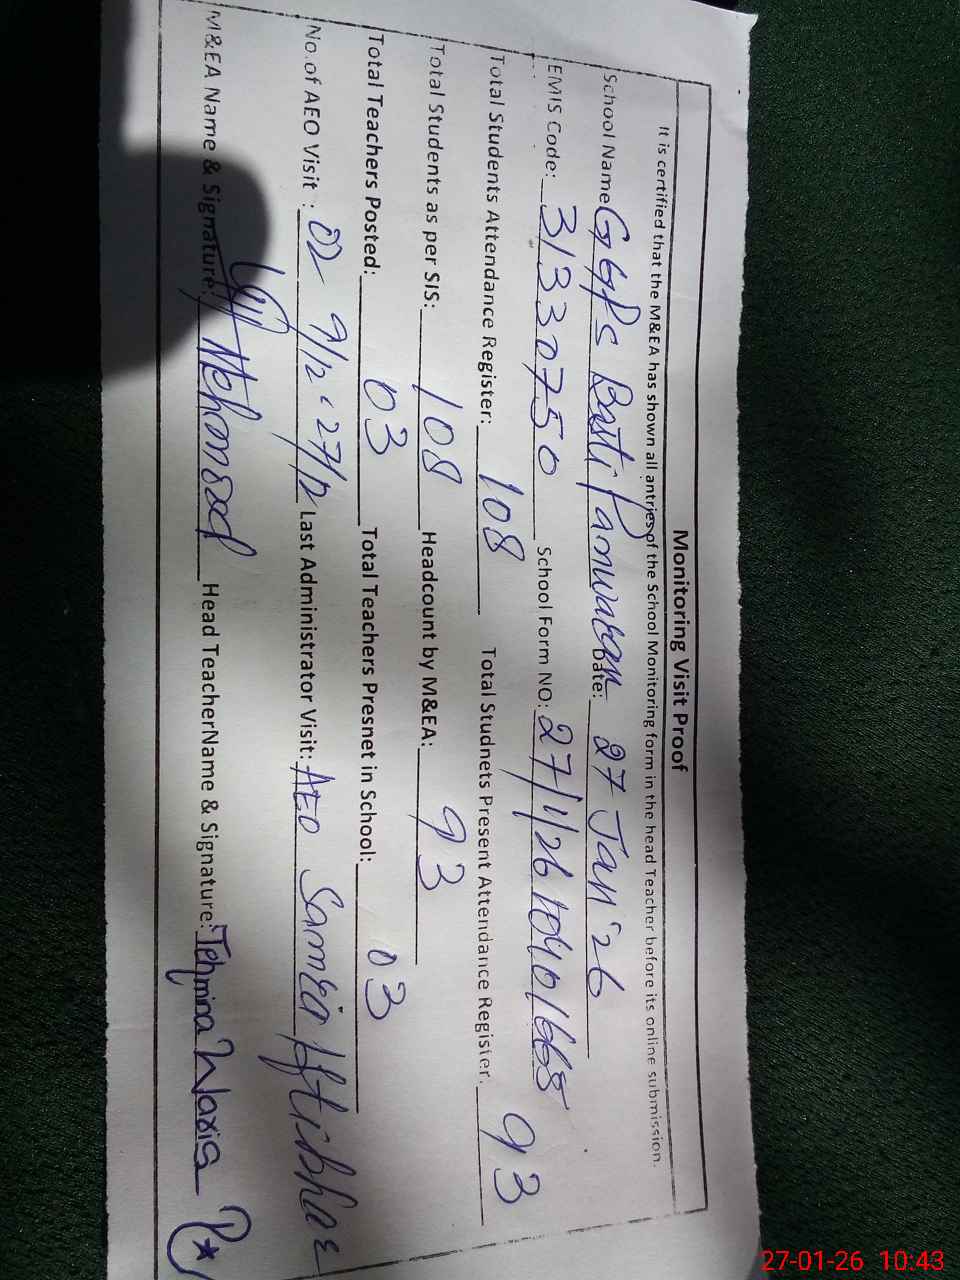 Monitoring Visit Proof
It is certified that the M&EA has shown all antries of the School Monitoring form in the head Teacher before its online submission.
School Name GGPS Basti Panwaran Date: 27 Jan'26
EMIS Code: 31330750 School Form NO: 27/1/26 1040/668
Total Students Attendance Register: 108 Total Studnets Present Attendance Register. 93
Total Students as per SIS: 108 Headcount by M&EA: 93
Total Teachers Posted: 03 Total Teachers Presnet in School: 03
No.of AEO Visit : 02 9/12 27/12 Last Administrator Visit: AEO Samia Iftikhar
M&EA Name & Signature: Mehmood Head TeacherName & Signature: Tehmina Waris
27-01-26 10:43